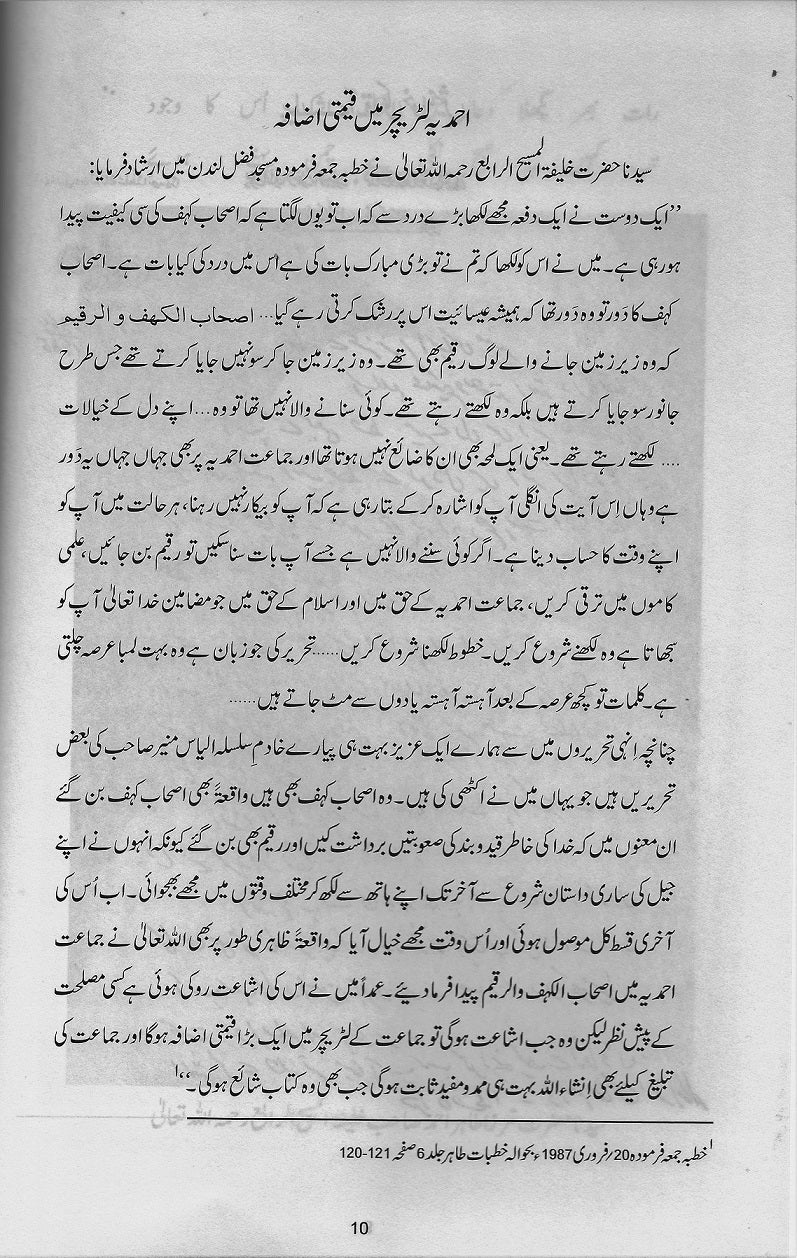 احمدیہ لٹریچر میں قیمتی اضافہ
سیدنا حضرت خلیفۃ المسیح الرابع رحمہ اللہ تعالیٰ نے خطبہ جمعہ فرمودہ مسجد فضل لندن میں ارشاد فرمایا:
”ایک دوست نے ایک دفعہ مجھے لکھا بڑے درد سے کہ اب تو یوں لگتا ہے کہ اصحاب کہف کی سی کیفیت پیدا
ہو رہی ہے۔ میں نے اس کو لکھا کہ تم نے تو بڑی مبارک بات کی ہے اس میں درد کی کیا بات ہے۔ اصحاب
کہف کا دَور تو وہ دَور تھا کہ ہمیشہ عیسائیت اس پر رشک کرتی رہے گی... اصحاب الکھف و الرقیم
کہ وہ زیر زمین جانے والے لوگ رقیم بھی تھے۔ وہ زیر زمین جا کر سو نہیں جایا کرتے تھے جس طرح
جانور سو جایا کرتے ہیں بلکہ وہ لکھتے رہتے تھے۔ کوئی سنانے والا نہیں تھا تو وہ... اپنے دل کے خیالات
.... لکھتے رہتے تھے۔ یعنی ایک لمحہ بھی ان کا ضائع نہیں ہوتا تھا اور جماعت احمدیہ پر بھی جہاں جہاں یہ دَور
ہے وہاں اِس آیت کی انگلی آپ کو اشارہ کر کے بتا رہی ہے کہ آپ کو بیکار نہیں رہنا، ہر حالت میں آپ کو
اپنے وقت کا حساب دینا ہے۔ اگر کوئی سننے والا نہیں ہے جسے آپ بات سنا سکیں تو رقیم بن جائیں، علمی
کاموں میں ترقی کریں، جماعت احمدیہ کے حق میں اور اسلام کے حق میں جو مضامین خدا تعالیٰ آپ کو
سجھاتا ہے وہ لکھنے شروع کریں۔ خطوط لکھنا شروع کریں...... تحریر کی جو زبان ہے وہ بہت لمبا عرصہ چلتی
ہے۔ کلمات تو کچھ عرصہ کے بعد آہستہ آہستہ یادوں سے مٹ جاتے ہیں......
چنانچہ انہی تحریروں میں سے ہمارے ایک عزیز بہت ہی پیارے خادمِ سلسلہ الیاس منیر صاحب کی بعض
تحریریں ہیں جو یہاں میں نے اکٹھی کی ہیں۔ وہ اصحاب کہف بھی ہیں واقعۃً بھی اصحاب کہف بن گئے
ان معنوں میں کہ خدا کی خاطر قید و بند کی صعوبتیں برداشت کیں اور رقیم بھی بن گئے کیونکہ انہوں نے اپنے
جیل کی ساری داستان شروع سے آخر تک اپنے ہاتھ سے لکھ کر مختلف وقتوں میں مجھے بھجوائی۔ اب اُس کی
آخری قسط کل موصول ہوئی اور اُس وقت مجھے خیال آیا کہ واقعۃً ظاہری طور پر بھی اللہ تعالیٰ نے جماعت
احمدیہ میں اصحاب الکہف والرقیم پیدا فرما دیئے۔ عمداً میں نے اس کی اشاعت روکی ہوئی ہے کسی مصلحت
کے پیش نظر لیکن وہ جب اشاعت ہوگی تو جماعت کے لٹریچر میں ایک بڑا قیمتی اضافہ ہوگا اور جماعت کی
تبلیغ کیلئے بھی اِنشاء اللہ بہت ہی ممد و مفید ثابت ہوگی جب بھی وہ کتاب شائع ہوگی۔“ا
ا خطبہ جمعہ فرمودہ 20/فروری 1987ء بحوالہ خطبات طاہر جلد 6 صفحہ 120-121
10